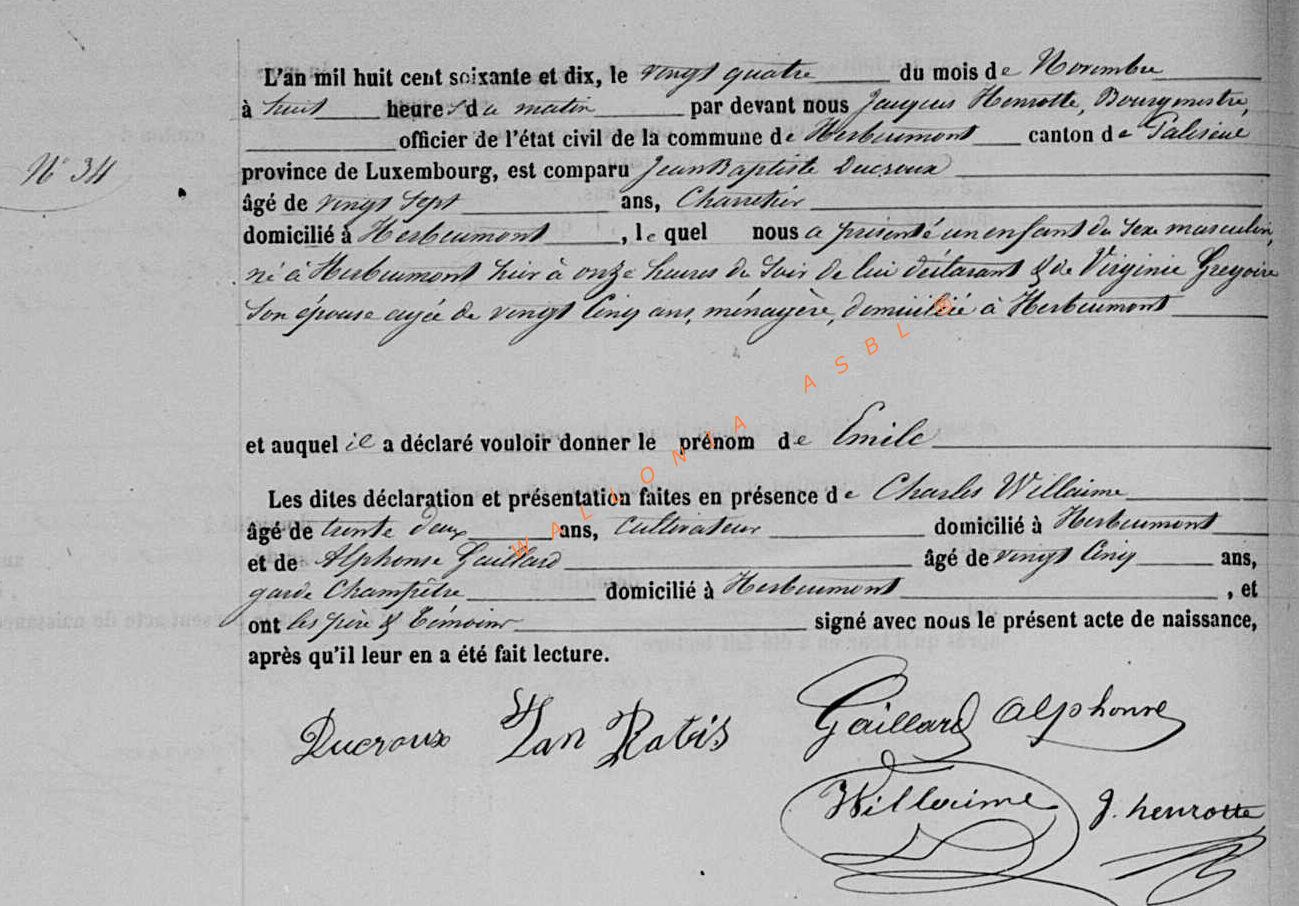 L'an mil huit cent soixante et dix, le vingt quatre du mois de Novembre
à huit heures du matin par devant nous Jacques Henrotte, Bourgmestre,
officier de l'état civil de la commune de Herbeumont canton de Paliseul
N° 34
province de Luxembourg, est comparu Jean Baptiste Ducroux
âgé de vingt sept ans, Charretier
domicilié à Herbeumont, le quel nous a présenté un enfant du sexe masculin,
né à Herbeumont hier à onze heures du soir de lui déclarant & de Virginie Gregoire
son épouse agée de vingt cinq ans, ménagère, domiciliée à Herbeumont
et auquel il a déclaré vouloir donner le prénom de Emile
Les dites déclaration et présentation faites en présence de Charles Willaime
âgé de trente deux ans, cultivateur domicilié à Herbeumont
et de Alphonse Gaillard âgé de vingt cinq ans,
garde Champêtre domicilié à Herbeumont, et
ont les père & témoins signé avec nous le présent acte de naissance,
après qu'il leur en a été fait lecture.
Ducroux Jan Batis Gaillard Alphonse
Willaime J. henrotte
WALLONIA ASBL ©